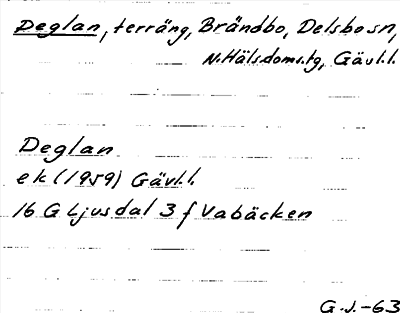 Deglan, terräng, Brändbo, Delsbo sn,
N.Hälsdoms.tg, Gävl.l.
Deglan
ek (1959) Gävl.l.
16 G Ljusdal 3 f Vabäcken
G.J.-63